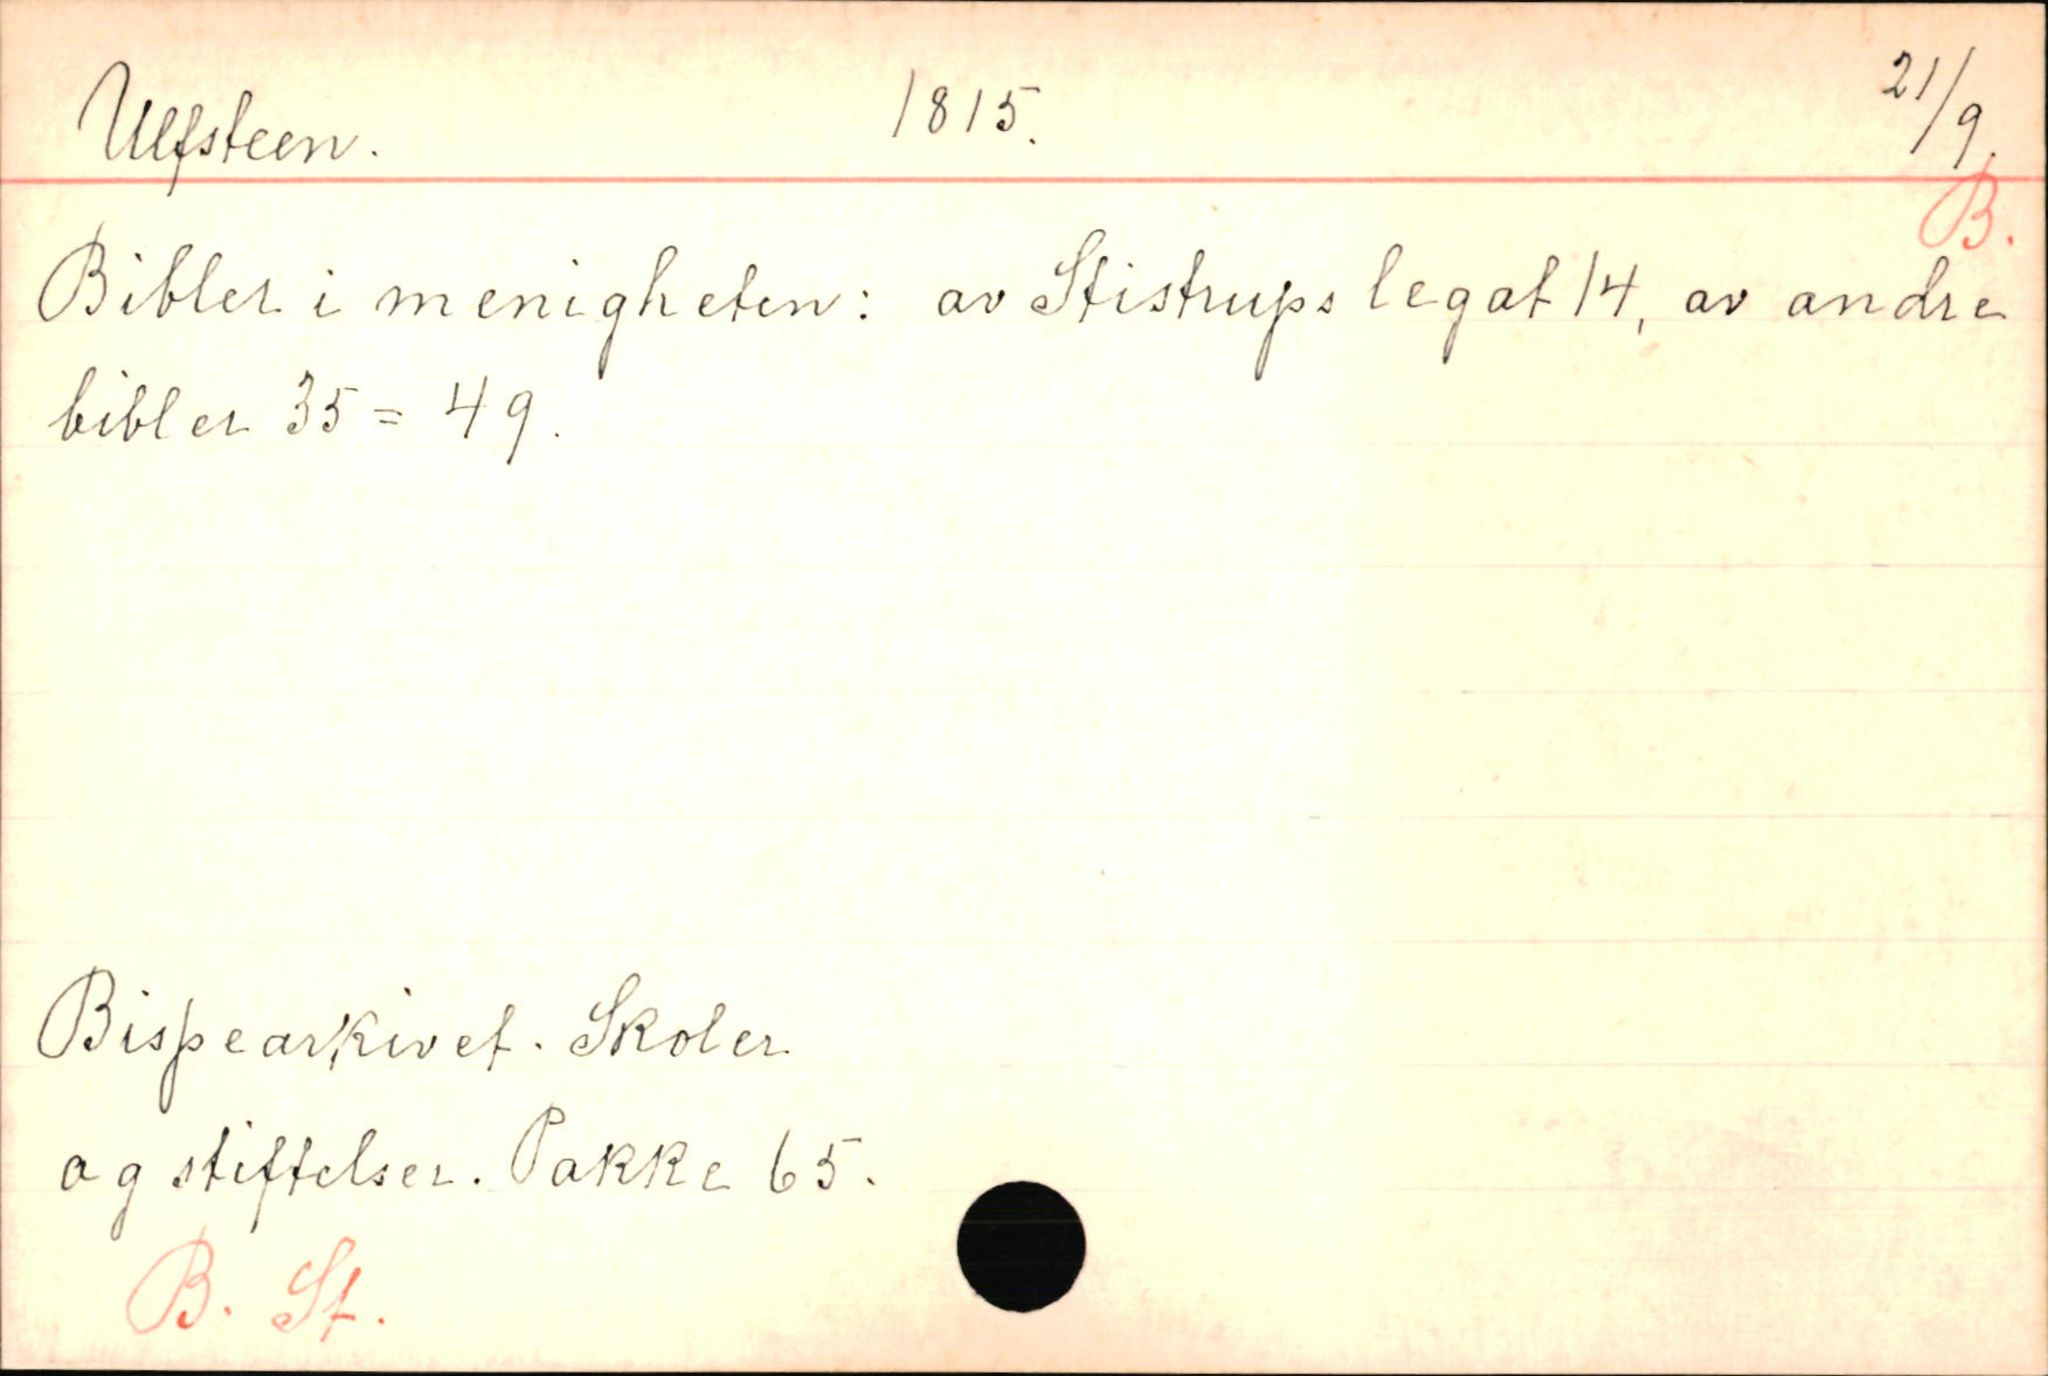 Ulfsteen. 1815. 21/9.
B.
Bibler i menigheten: av Stistrups legat 14, av andre
bibler 35 = 49.
Bispearkivet. Skoler
og stiftelser. Pakke 65.
B. St.